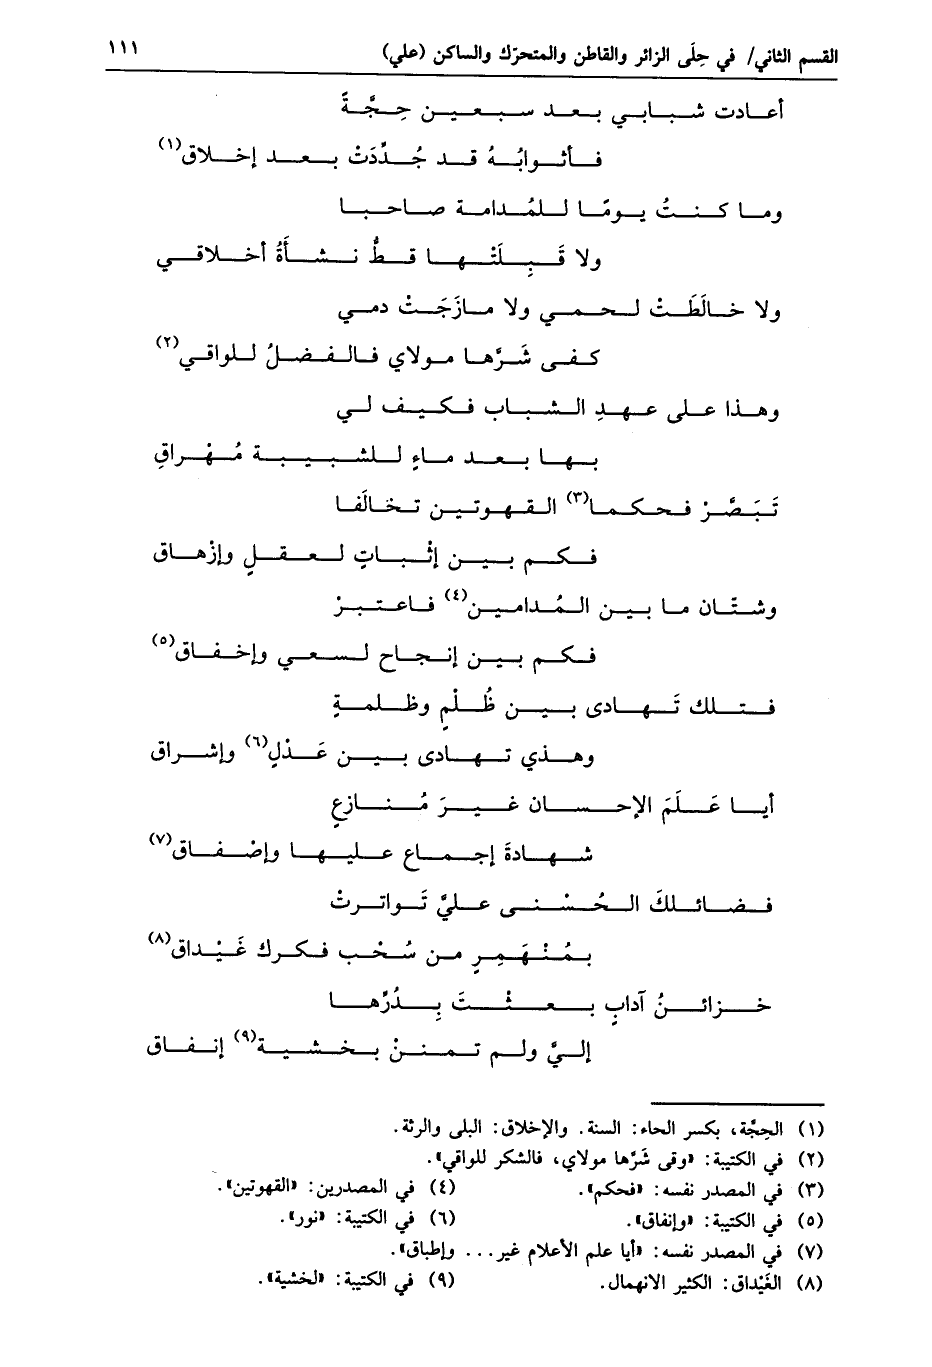 القسم الثاني/ في حِلَى الزائر والقاطن والمتحرّك والساكن (علي) ١١١
أعادت شبابي بعد سبعين حِجَّةً
فأثوابُهُ قد جُدِّدَتْ بعد إخلاق(١)
وما كنتُ يومًا للمُدامة صاحبا
ولا قَبِلَتْها قطُّ نشأَةُ أخلاقي
ولا خالَطَتْ لحمي ولا مازَجَتْ دمي
كفى شَرَّها مولاي فالفضلُ للواقي(٢)
وهذا على عهدِ الشباب فكيف لي
بها بعد ماءٍ للشبيبة مُهْراقِ
تَبَصَّرْ فحكما(٣) القهوتين تخالَفا
فكم بين إثْباتٍ لعقلٍ وإزْهاق
وشتّان ما بين المُدامين(٤) فاعتبرْ
فكم بين إنجاح لسعي وإخفاق(٥)
فتلك تَهادى بين ظُلْمٍ وظلمةٍ
وهذي تهادى بين عَدْلٍ(٦) وإشراق
أيا عَلَمَ الإحسان غيرَ مُنازعٍ
شهادةَ إجماع عليها وإصْفاق(٧)
فضائلكَ الحُسْنى عليَّ تَواترتْ
بمُنْهَمِرٍ من سُحْب فكرك غَيْداق(٨)
خزائنُ آدابٍ بعثْتَ بِدُرِّها
إليَّ ولم تمننْ بخشية(٩) إنفاق
(١) الحِجَّة، بكسر الحاء: السنة. والإخلاق: البلى والرثة.
(٢) في الكتيبة: «وقى شَرَّها مولاي، فالشكر للواقي».
(٣) في المصدر نفسه: «فحكم». (٤) في المصدرين: «القهوتين».
(٥) في الكتيبة: «وإنفاق». (٦) في الكتيبة: «نور».
(٧) في المصدر نفسه: «أيا علم الأعلام غير... وإطباق».
(٨) الغَيْداق: الكثير الانهمال. (٩) في الكتيبة: «لخشية».